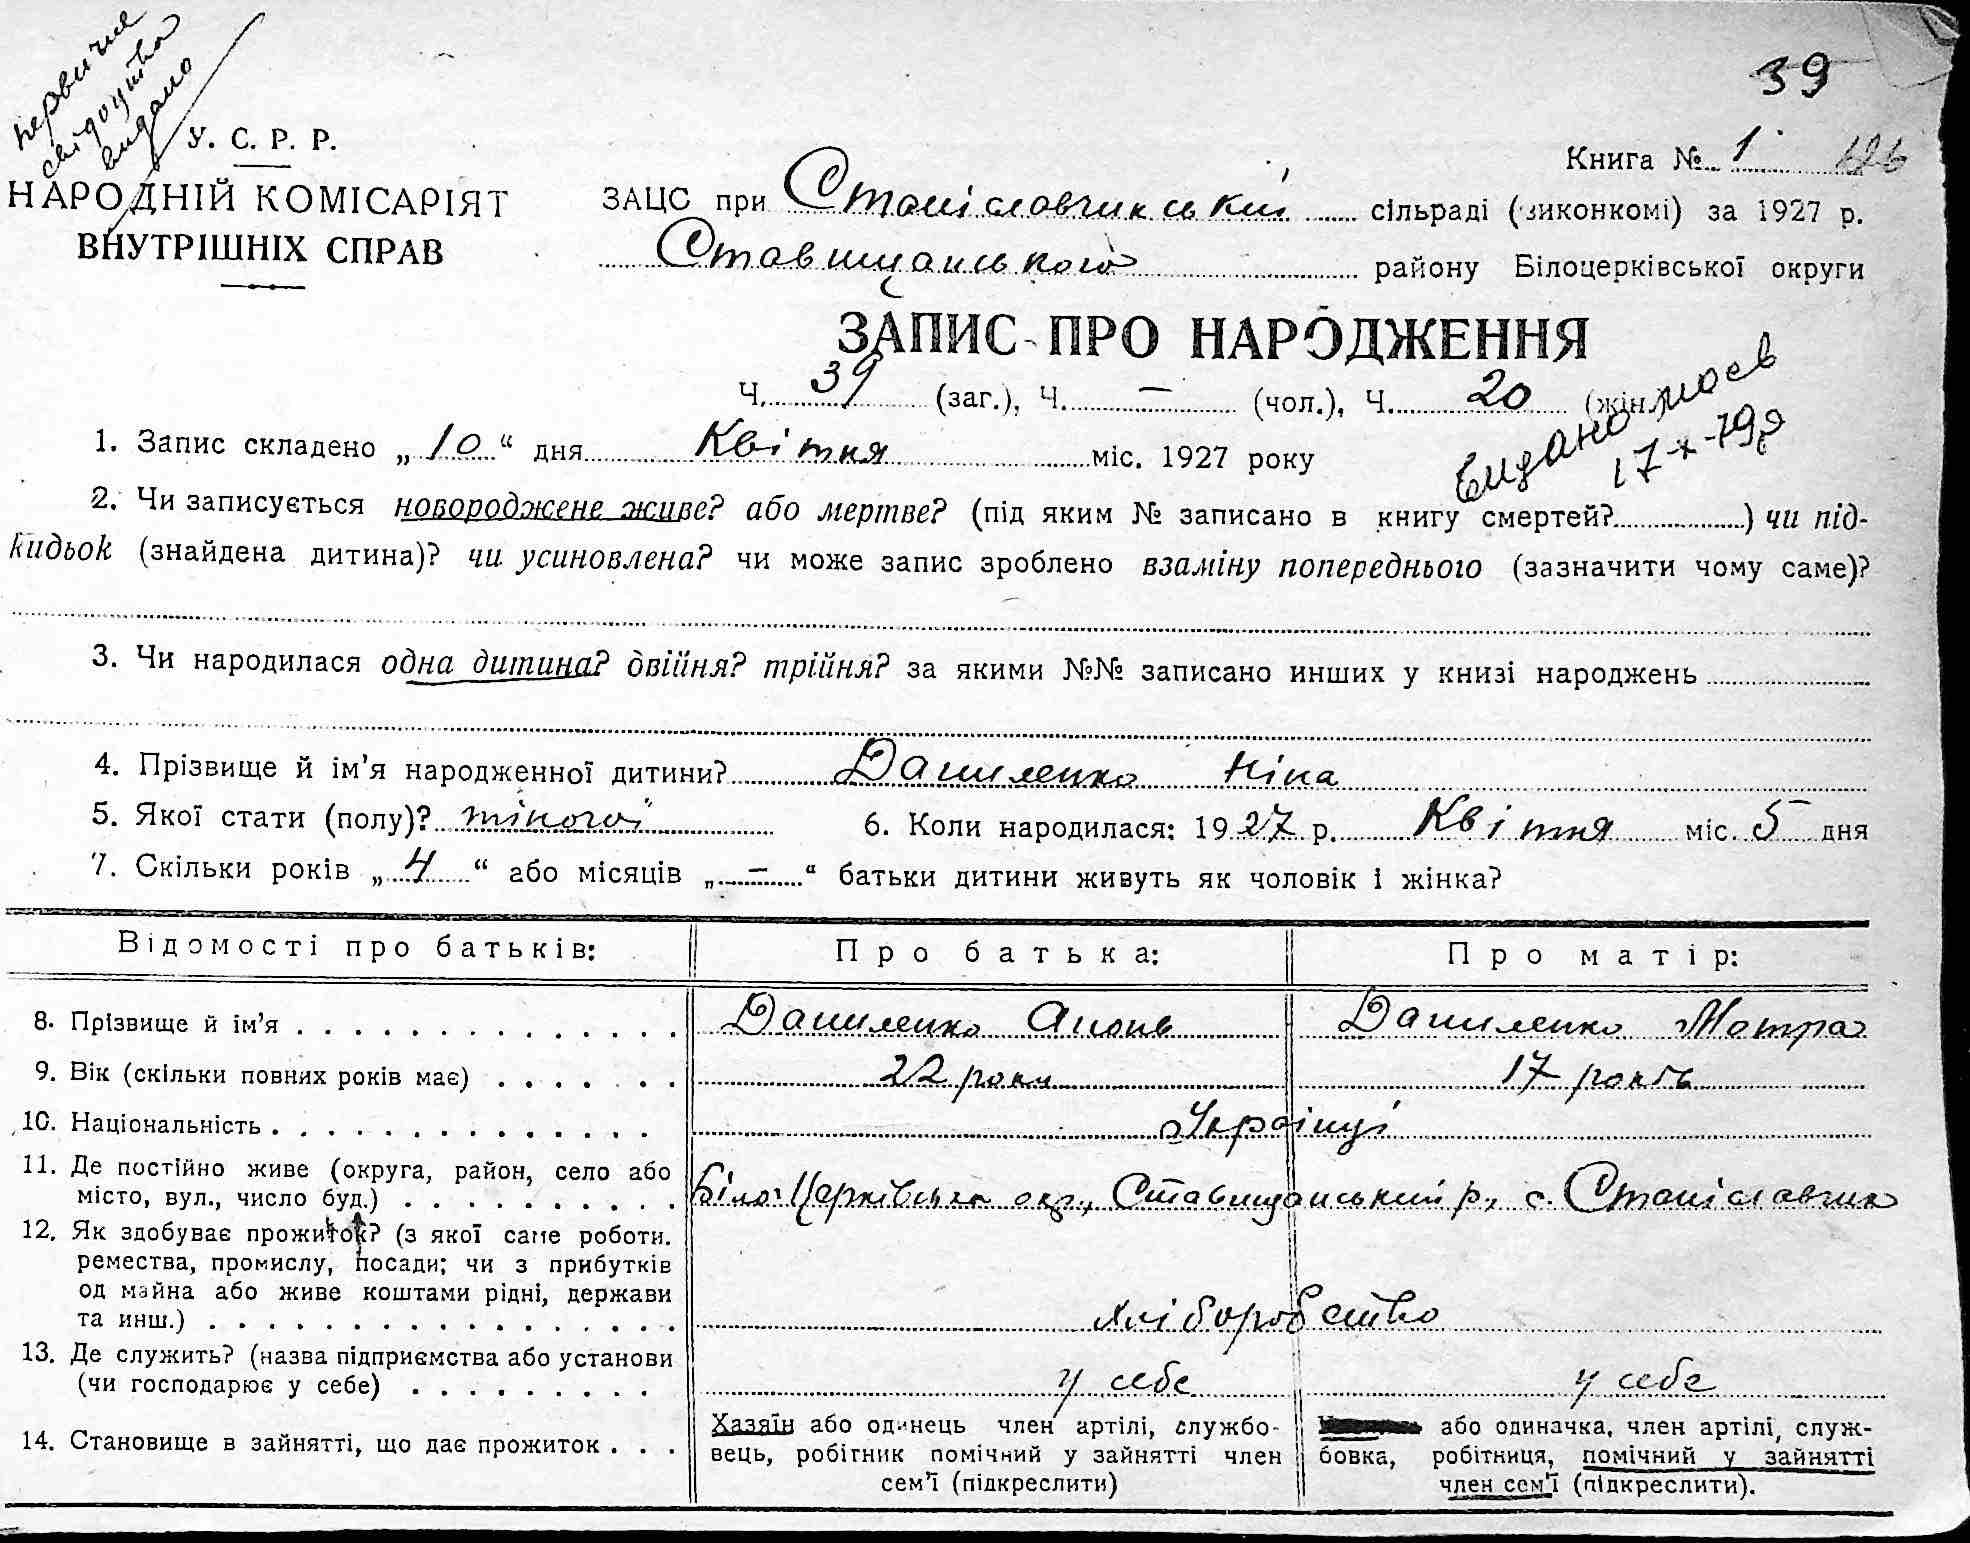 первичне
свідоцтво
видано
39
У. С. Р. Р.
НАРОДНІЙ КОМІСАРІЯТ
ВНУТРІШНІХ СПРАВ
Книга № 1
ЗАЦС при Станіславчикській сільраді (виконкомі) за 1927 р.
Ставищанського району Білоцерківської округи
ЗАПИС ПРО НАРОДЖЕННЯ
Ч. 39 (заг.), Ч. — (чол.), Ч. 20 (жін.
Видано
1. Запис складено „10“ дня Квітня міс. 1927 року
2. Чи записується новороджене живе? або мертве? (під яким № записано в книгу смертей?) чи під-
кидьок (знайдена дитина)? чи усиновлена? чи може запис зроблено взаміну попереднього (зазначити чому саме)?
3. Чи народилася одна дитина? двійня? трійня? за якими №№ записано инших у книзі народжень
4. Прізвище й ім’я народженної дитини? Даниленко Ніна
5. Якої стати (полу)? жіночої 6. Коли народилася: 1927 р. Квітня міс. 5 дня
7. Скільки років „4“ або місяців „—“ батьки дитини живуть як чоловік і жінка?
Відомості про батьків: Про батька: Про матір:
8. Прізвище й ім’я . . . . . . . . . . . . . . Даниленко Антон Даниленко Мотра
9. Вік (скільки повних років має) . . . . . . . 22 роки 17 років
10. Національність . . . . . . . . . . . . . . Українці
11. Де постійно живе (округа, район, село або
місто, вул., число буд.) . . . . . . . . . . Біло-Церківська окр., Ставищанський р., с. Станіславчик
12. Як здобуває прожиток? (з якої саме роботи.
ремества, промислу, посади; чи з прибутків
од майна або живе коштами рідні, держави
та инш.) . . . . . . . . . . . . . . . . . хліборобство
13. Де служить? (назва підприємства або установи
(чи господарює у себе) . . . . . . . . . у себе у себе
14. Становище в зайнятті, що дає прожиток . . .
Хазяїн або одинець член артілі, службо-
вець, робітник помічний у зайнятті член
сем’ї (підкреслити)
або одиначка, член артілі, служ-
бовка, робітниця, помічний у зайнятті
член сем’ї (підкреслити).